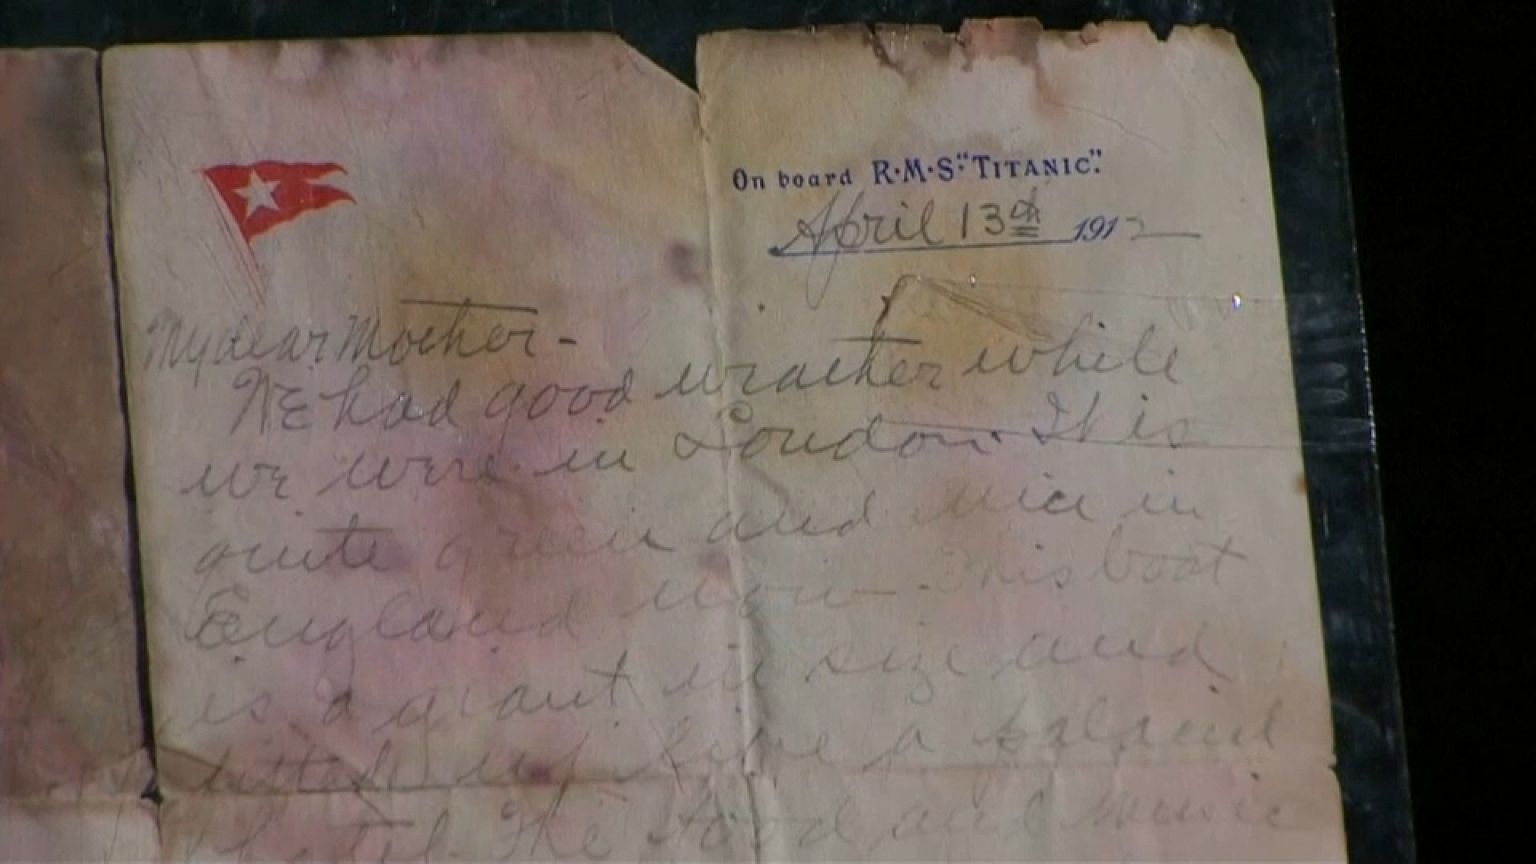 On board R·M·S· "TITANIC".
April 13th 1912
My dear Mother -
We had good weather while
we were in London. It is
quite green and nice in
England now. This boat
is a giant in size and
fitted up like a palacial
hotel. The food and music